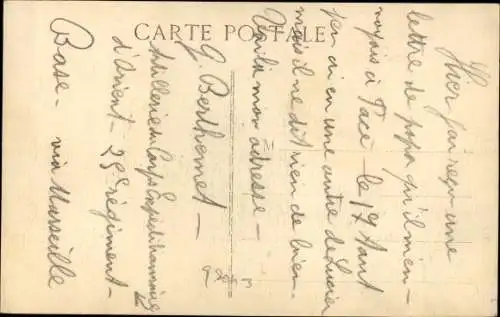 CARTE POSTALE
Hier j'ai reçu une
lettre de papa qu'il m'en-
voyais à Pacé - le 17 Aout
j'en ai eu une autre de Lucien
mais il ne dit rien de bien.
Voilà mon adresse -
G. Berthemet -
Artillerie du Corps Expéditionnaire
d'Orient - 2e régiment -
Base - via Marseille